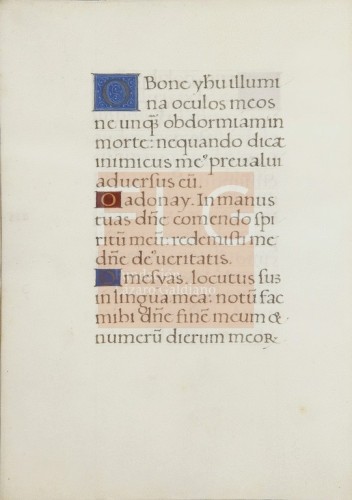 O Bone yhu illumi
na oculos meos
ne unqȝ obdormiam in
morte: nequando dicæ
inimicus meꝰ preualui
aduersus eū.
O adonay. In manus
tuas dñe comendo spi
ritūm meū: redemisti me
dñe deꝰ ueritatis.
messyas, locutus sūs
in lingua mea: notū fac
mihi dñe finē meum &
numerū dierum meoꝝ
FLG
Lázaro Galdiano